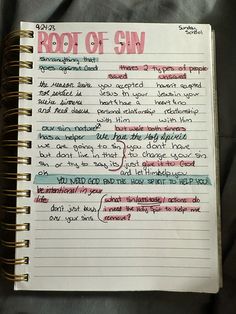 9-24-23
Sunday School
ROOT OF SIN
sin: anything that
goes against God
there's 2 types of people
saved unsaved
you accepted haven't accepted
Jesus in your Jesus in your
we're sinners heart & have a heart & no
and need Jesus personal relationship relationship
with Him with Him
our sin nature but we're both sinners
has a helper We have the Holy Spirit
we are going to sin you don't have
but dont live in that to change your sin
sin or try to say its just give it to God
ok and let Him help you
YOU NEED GOD AND THE HOLY SPIRIT TO HELP YOU!
be intentional in your
life what sin/attitude/actions do
don't just brush i need the Holy Spirit to help me
over your sins remove?